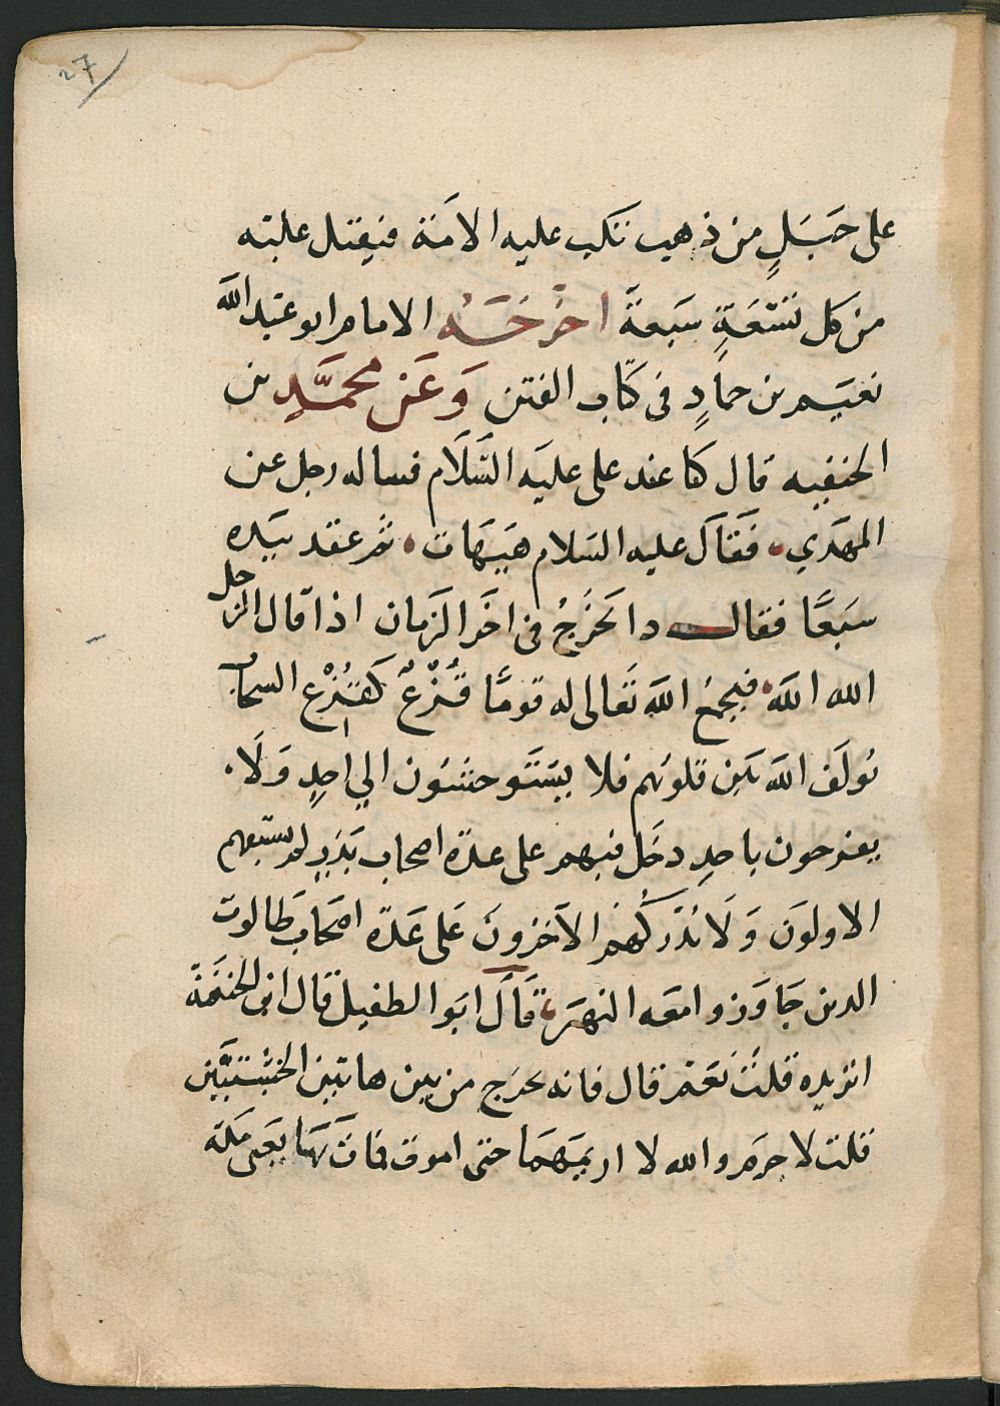 ٢٧
على جَبَلٍ من ذهب تكب عليه الامَنة فيقتل علبَه
من كل تسْعَةٍ سَبعة اخرَجَهُ الامام ابو عَبد اللَّه
نعيَم بن حمادٍ فى كتاب الفتن وَعَن محمَّدٍ بن
الحنفيه قال كنا عند على عليَه السَّلَام فساله رجل عن
المهَدي فَقَالَ عليه السَلام هَيَهَات ثم عقد بيَده
سَبَعًا فقال دا يَخرَجُ فى اخَر الزَمان اذا قال الرجل
الله اللَه فيجمعُ اللَه تَعَالى له قومًا قُزْعٌ كقُزْع السحاب
يُولَف اللَه بَين قلوبُهم فلا يسَتَوحشون الي احدٍ وَلَا
يفرحون باحدٍ دخَل فيهم على عدّه اصحاب بَدرٍ لم يسبَقهم
الاولوَن وَلَا يُدْركُهُم الآخرونَ عَلى عَدّه اصَحَاب طَالوت
الدين جَاوَزوا معَه النهَر قَالَ ابَو الطفيل قال ابن الحنَفَية
اتريده قلتُ نعَم قال فانه يخرَج من بين هاتين الخشْبتَين
قلت لا جرَم والله لا اريَمهَما حتى اموت فماتَ بهَا يَعَنى مَكة